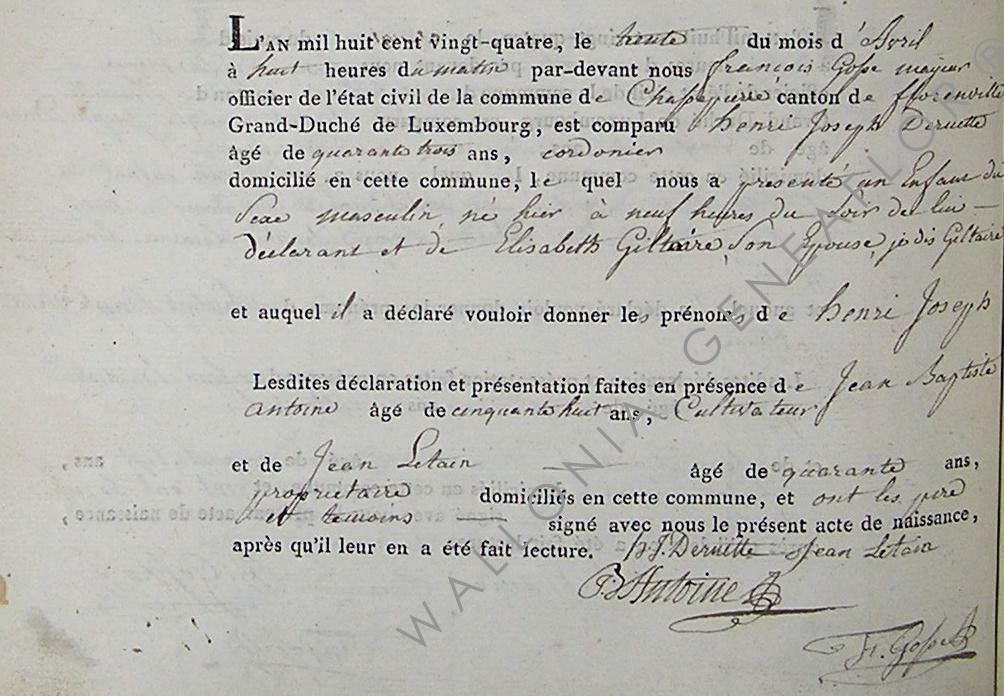 L'AN mil huit cent vingt-quatre, le trente du mois d'Avril
à huit heures du matin par-devant nous françois Gosse mayeur
officier de l'état civil de la commune de Chassepierre canton de fflorenville
Grand-Duché de Luxembourg, est comparu henri Joseph Deruette
âgé de quarante trois ans, cordonier
domicilié en cette commune, le quel nous a présenté un Enfant du
Sexe masculin né hier à neuf heures du soir de lui
déclarant et de Elisabeth Giltaire, son Epouse, jodis Giltaire
et auquel il a déclaré vouloir donner les prénoms de henri Joseph
Lesdites déclaration et présentation faites en présence de Jean Baptiste
antoine âgé de cinquante huit ans, Cultivateur
et de Jean Letain âgé de quarante ans,
propriétaire domiciliés en cette commune, et ont les père
et temoins signé avec nous le présent acte de naissance,
après qu'il leur en a été fait lecture. h J. Deruette Jean Letain
J B Antoine
Fr. Gosse
WALLONIA GENEALOGIE